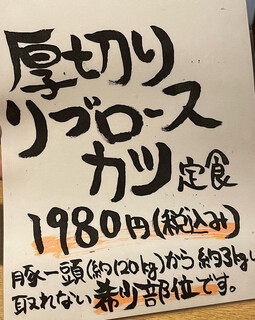 厚切り
リブロース
カツ定食
1980円(税込み)
豚一頭(約120kg)から約3kgし
取れない希少部位です。